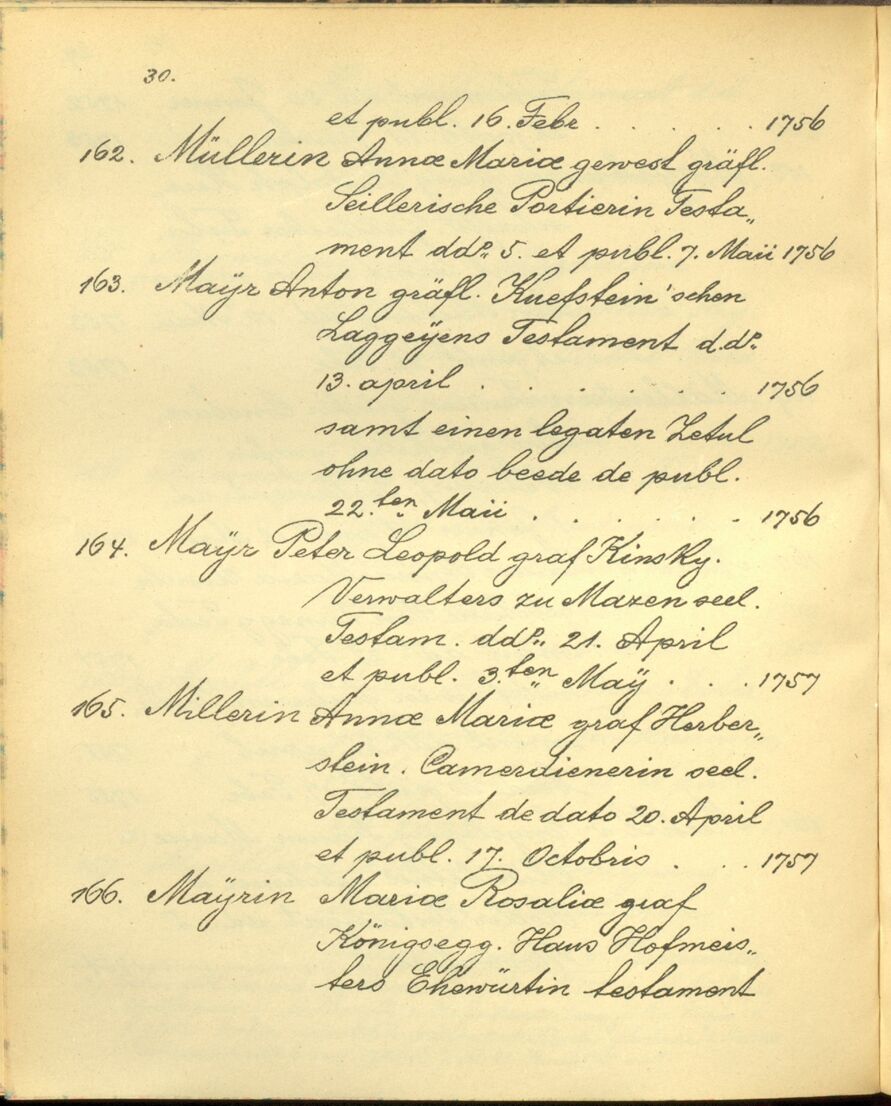 30.
et publ. 16. Febr . . . . . 1756
162. Müllerin Annæ Mariæ gewest gräfl.
Seillerische Portierin Testa„
ment ddº„ 5. et publ. 7. Maii 1756
163. Maÿr Anton gräfl. Kuefstein'schen
Laggeÿens Testament d.dº„
13. april . . . . . . 1756
samt einen legaten Zetul
ohne dato beede de publ.
22.ten Maii . . . . . . 1756
164. Maÿr Peter Leopold graf Kinsky.
Verwalters zu Mazen seel.
Testam. ddº„ 21. April
et publ. 3.ten„ Maÿ . . . 1757
165. Millerin Annæ Mariæ graf Herber„
stein. Camerdienerin seel.
Testament de dato 20. April
et publ. 17. Octobris . . 1757
166. Maÿrin Mariæ Rosaliæ graf
Königsegg. Haus Hofmeis„
ters Ehewürtin testament